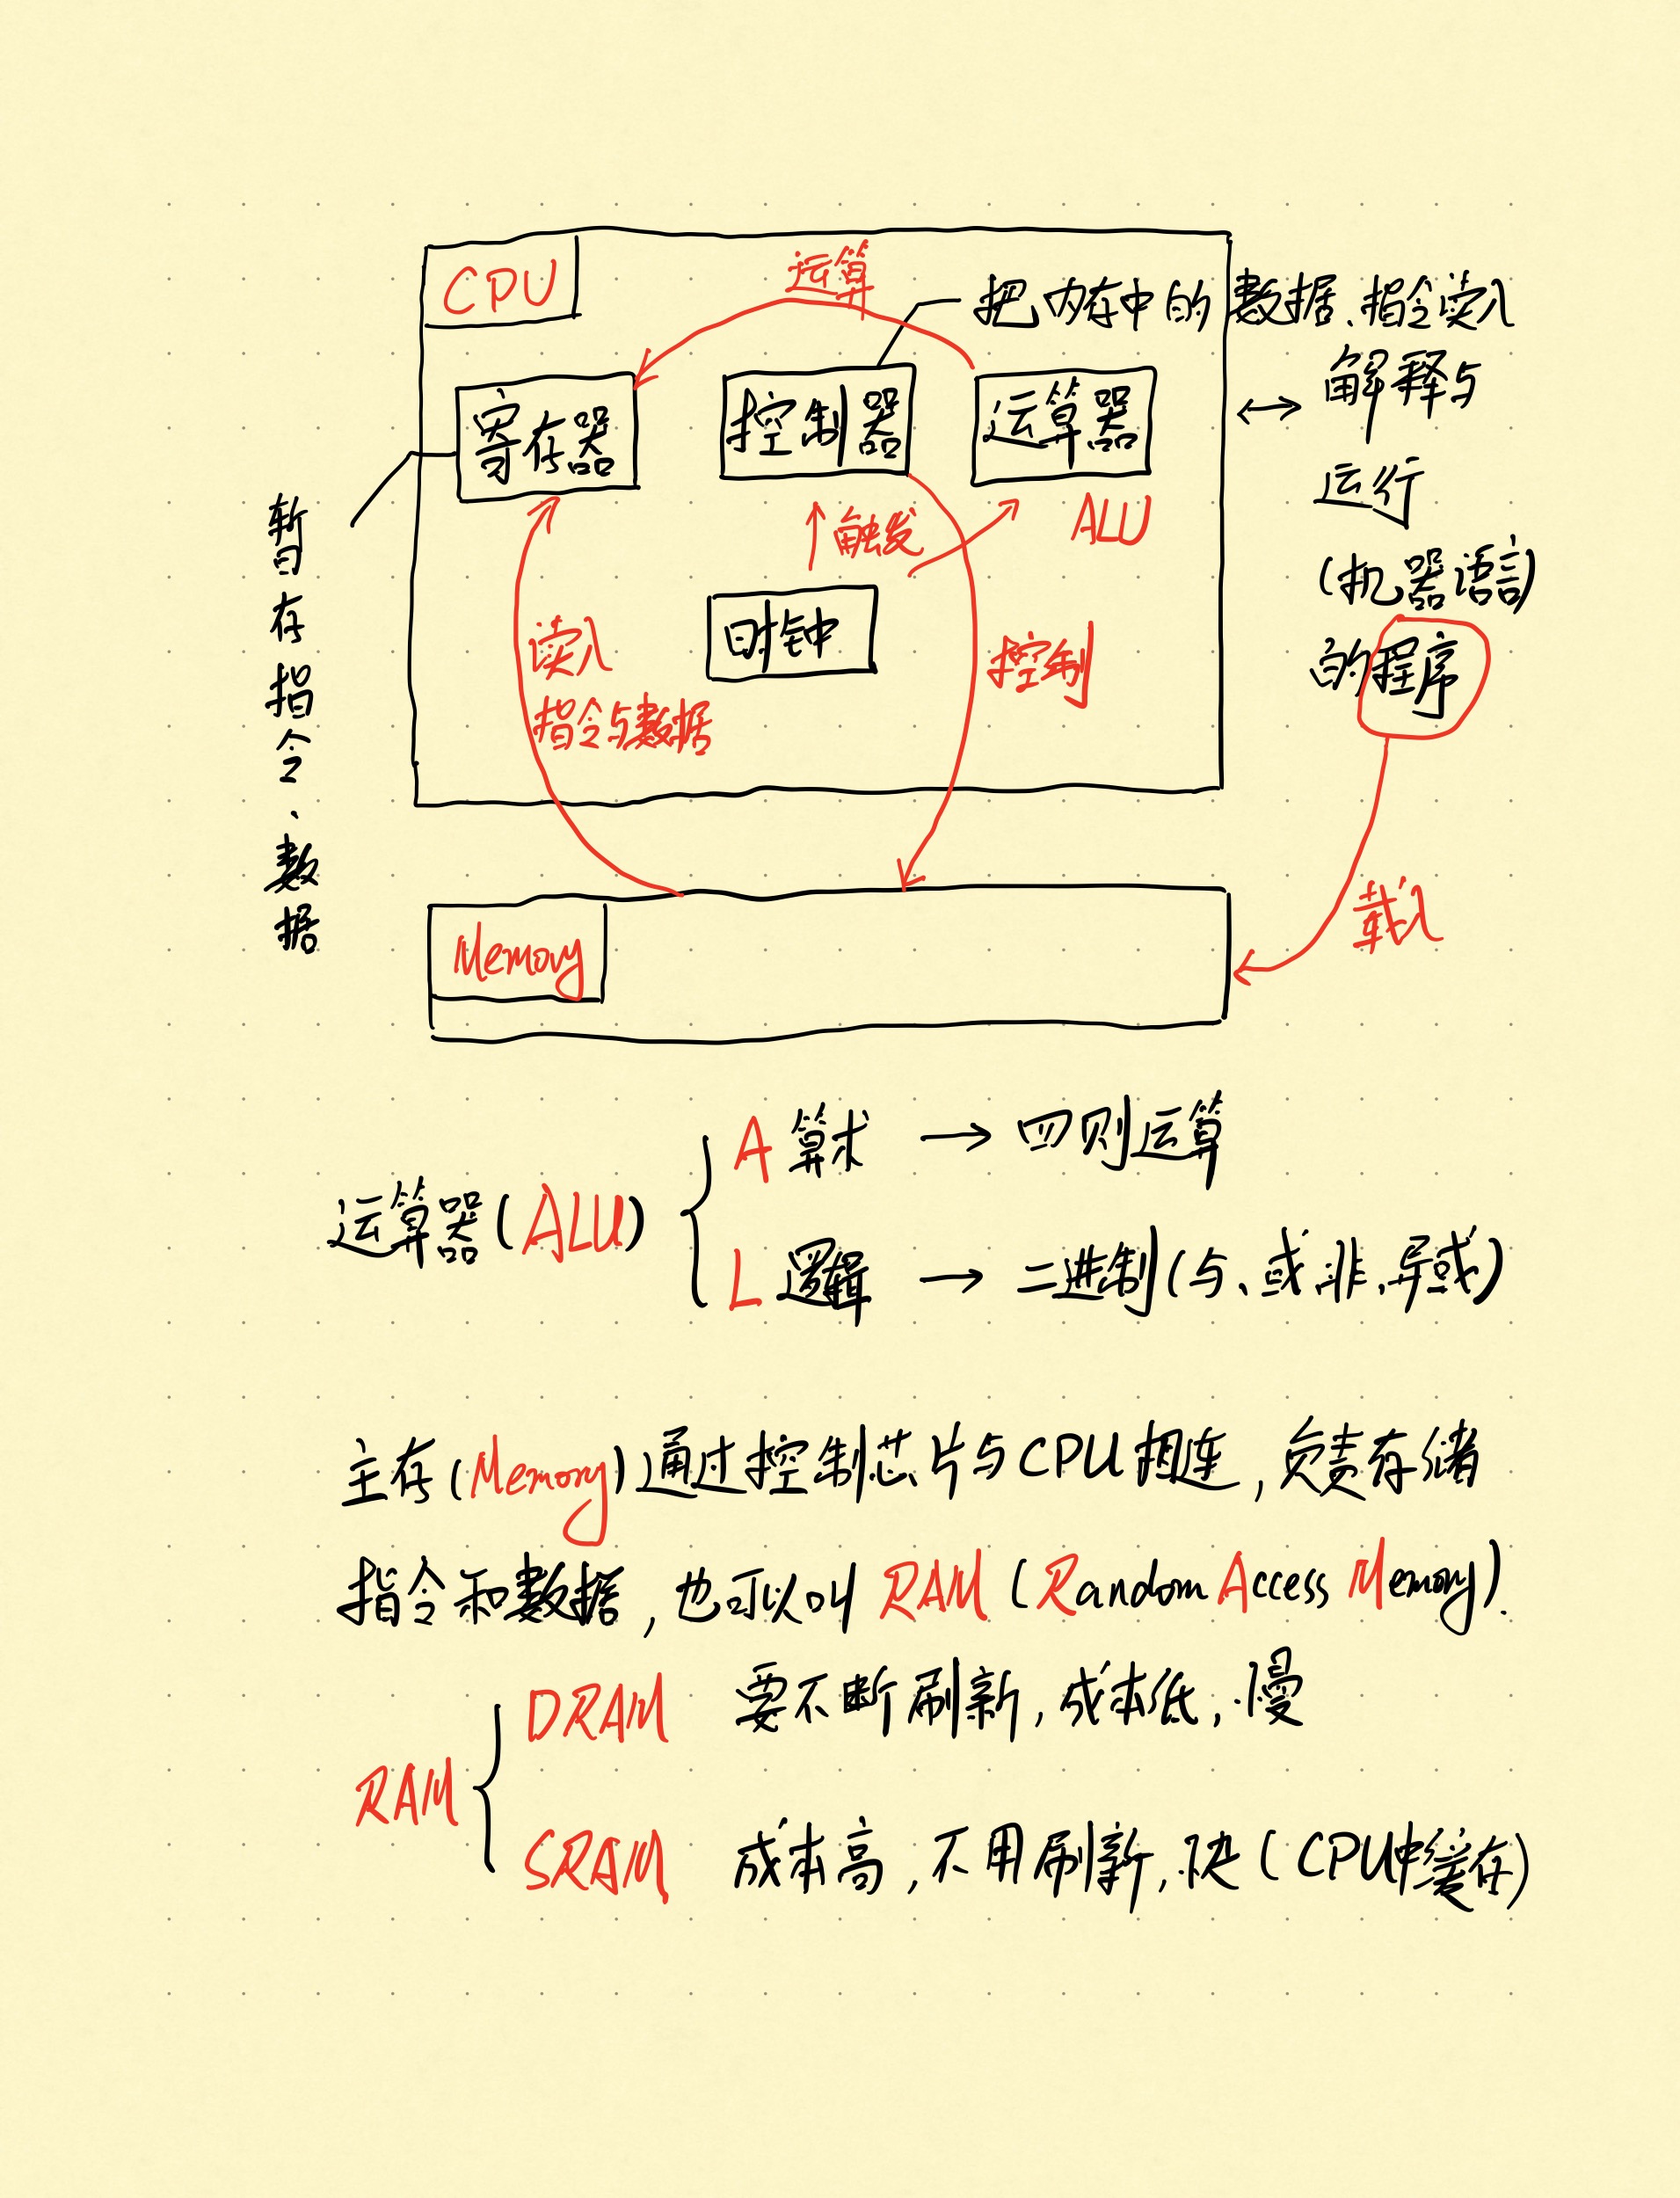 CPU
运算
把内存中的数据、指令读入
寄存器
控制器
运算器
解释与
运行
(机器语言)
的程序
触发
ALU
时钟
读入
指令与数据
控制
暂存指令、数据
载入
Memory
运算器(ALU)
A 算术 → 四则运算
L 逻辑 → 二进制(与、或、非、异或)
主存(Memory)通过控制芯片与CPU相连,负责存储
指令和数据,也可以叫 RAM (Random Access Memory).
RAM
DRAM 要不断刷新,成本低,慢
SRAM 成本高,不用刷新,快(CPU中缓存)